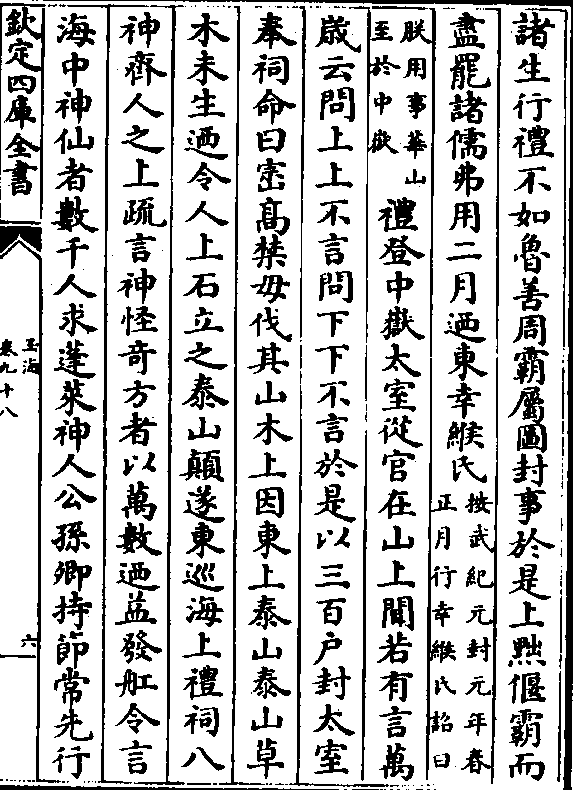 諸生行禮不如魯善周霸屬圖封事於是上黜偃霸而
盡罷諸儒弗用二月廼東幸緱氏按武紀元封元年春正月行幸緱氏詔曰
朕用事華山至於中嶽禮登中嶽太室從官在山上聞若有言萬
歲云問上上不言問下下不言於是以三百户封太室
奉祠命曰崈髙禁毋伐其山木上因東上泰山泰山草
木未生廼令人上石立之泰山顛遂東巡海上禮祠八
神齊人之上疏言神怪奇方者以萬數廼益發舡令言
海中神仙者數千人求蓬萊神人公孫卿持節常先行
欽定四庫全書
玉海
卷九十八
六